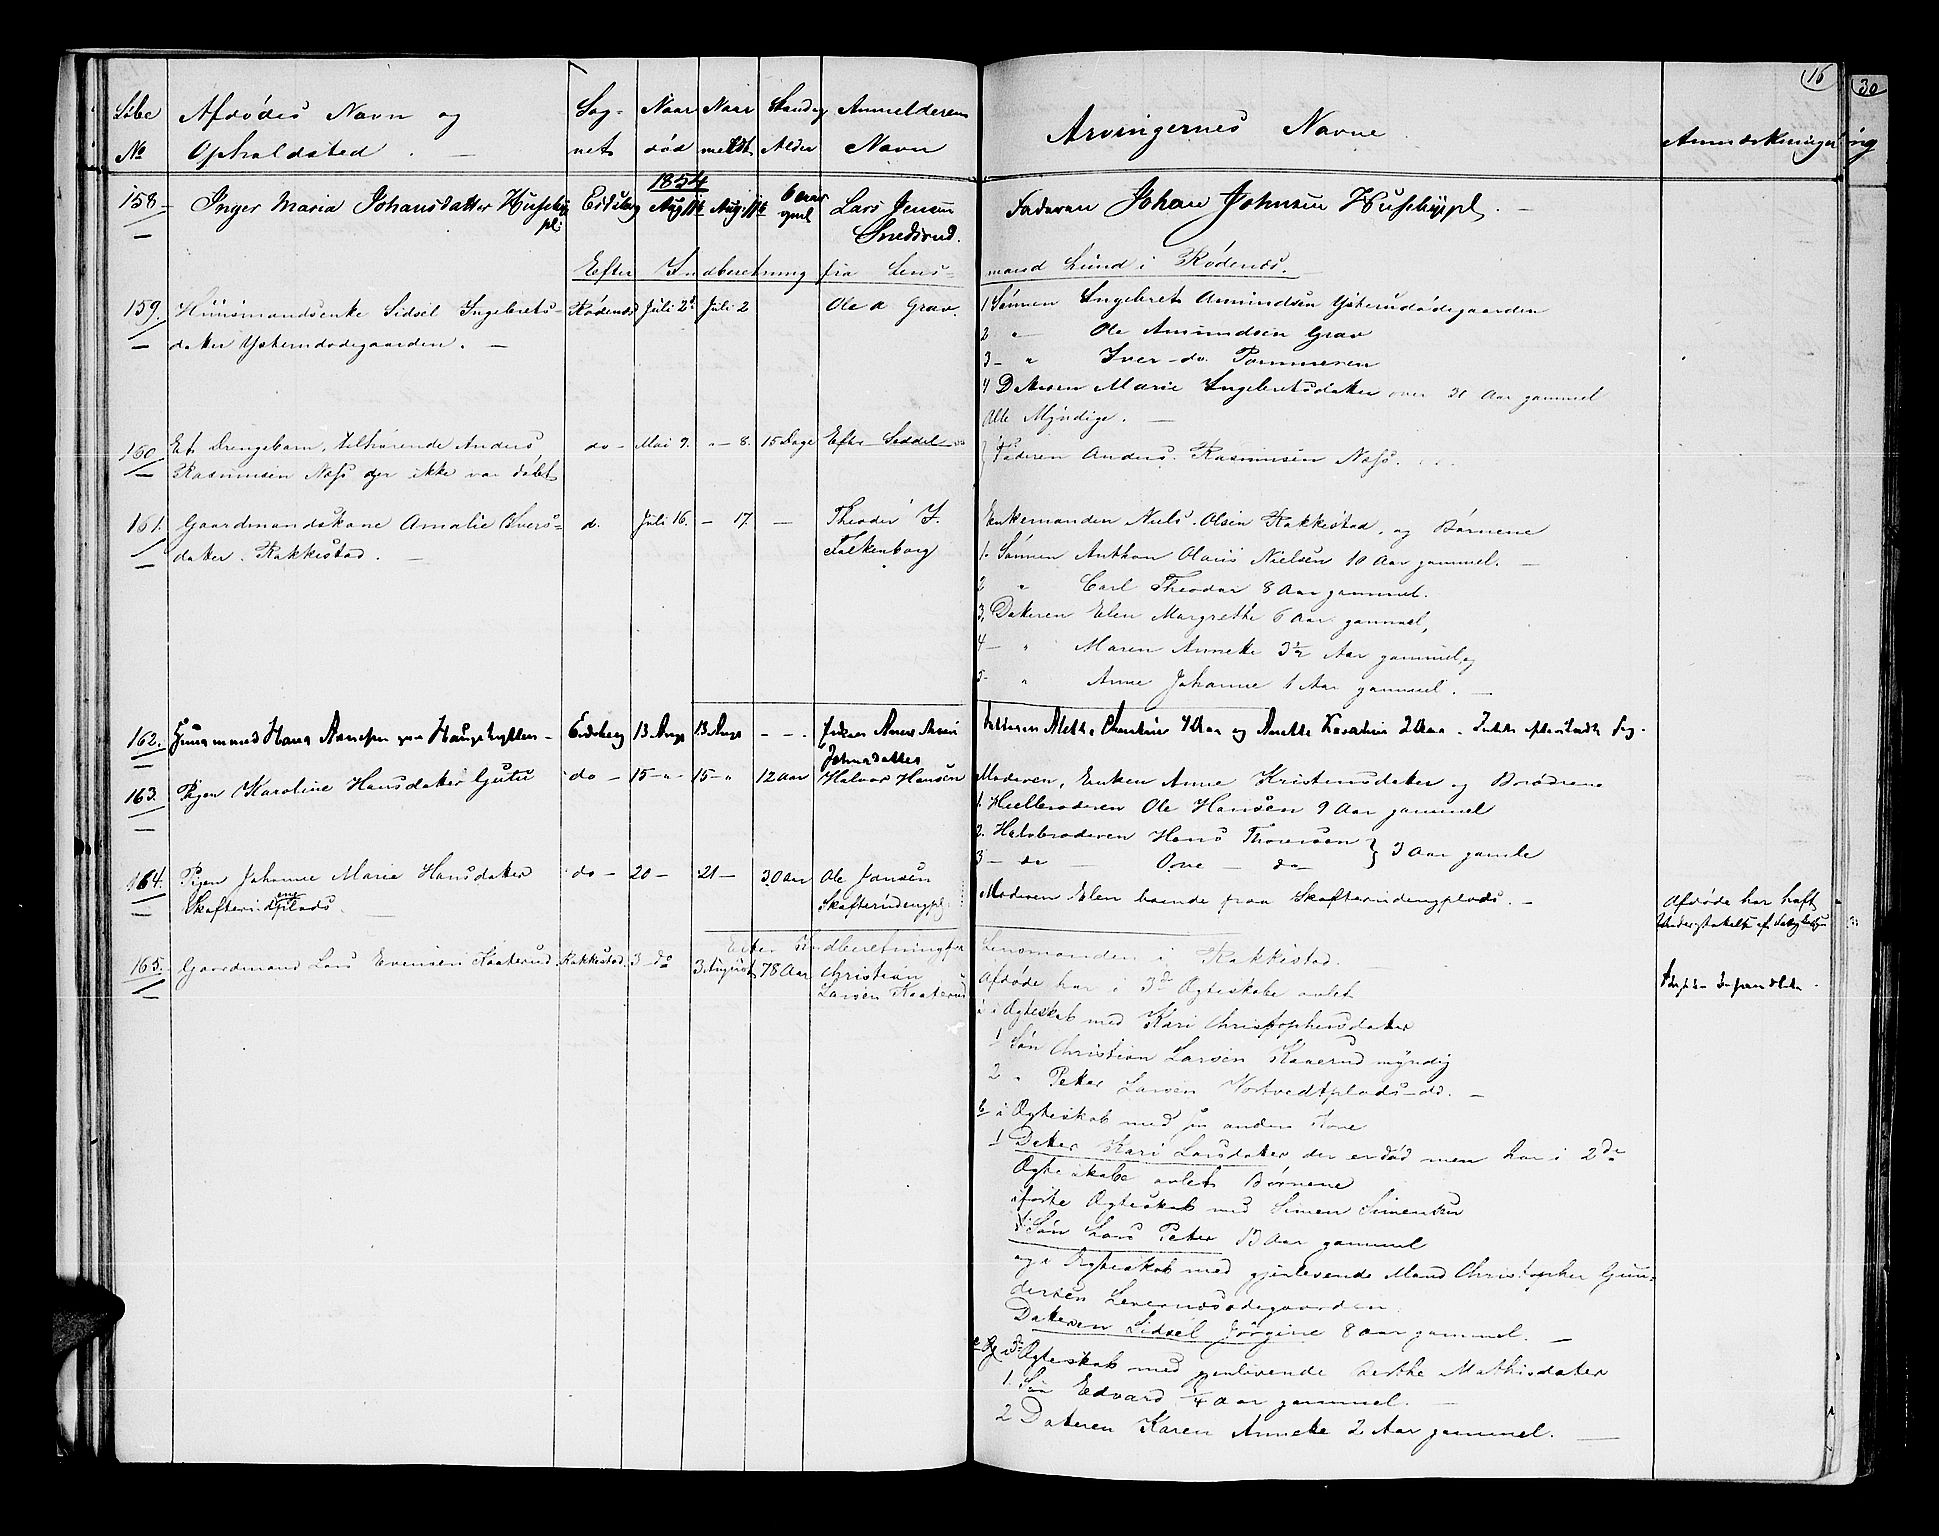 16
30
Løbe No
Afdødes Navn og Opholdsted. —
Sognet
Naar død
Naar meldt
Stand og Alder
Anmelderens Navn
Arvingernes Navne
Anmærkninger
ng
1854
158 Inger Maria Johansdatter Huseby pl: Eidsberg Aug 16 Aug: 16 6 aar gml Lars Jensen Snedsrud.
Faderen Johan Johnsen Husebypl. —
Efter Indberetning fra Lens-
mand Lund i Rødenæs.
159. Huusmandsenke Sidsel Ingebrets- Rødenæs Juli 2d Juli 2 Ole A Grav.
datter Ysterudødegaarden. —
1 Sønnen Ingebret Amundsen Ysterudødegaarden
2 " Ole Amundsen Grav
3 - " Iver do Pommeren
4 Datteren Marie Ingebretsdatter over 30 Aar gammel
Alle Myndige. —
160 Et Drengebarn, tilhørende Anders do - Mai 9. " - 8. 15 Dage Efter Seddel
Rasmusen Næss der ikke var døbt
Faderen Anders Rasmusen Næss.
161. Gaardmandskone Amalie Ivers- d. Juli 16. - 17. — Theodor J. Falkenborg
datter. Rakkestad. —
Enkemanden Niels Olsen Rakkestad, og Børnene
1. Sønnen Anthon Olaus Nielsen 10 Aar gammel. —
2 " Carl Theodor 8 Aar gammel.
3. Datteren Elen Margrethe 6 Aar gammel,
4 - " Maren Annette 3½ Aar gammel, og
5- " Anne Johanne 1 Aar gammel. —
162. Huusmand Hans Hansen Haugehytten - Eidsberg 13 Aug 13 Aug - - . Enken Johnsdatter
Døtteren Mette Christine 4 Aar og Anette Karoline 2 Aar. Intet efterladt sig.
163. Pigen Karoline Hansdatter Gutu do - 15 - " 15 - " 12 Aar Halvor Hansen
Moderen, Enken Anne Kristensdatter og Brødrene
1. Heelbroderen Ole Hansen 9 Aar gammel
2. Halvbroderen Hans Thoresen } 3 Aar gamle
3 - do - Ove - do
164. Pigen Johanne Marie Hansdatter do - 20 - 21 - 30 Aar Ole Jansen Skofterudengpl.
Skofterudengplads. —
Moderen Elen boende paa Skofterudengplads. —
Afdøde har haft
Understøttelse af
Efter Indberetning fra
Lensmanden i Rakkestad. —
165. Gaardmand Lars Evensen Kaaterud Rakkestad 3 do 3 August 78 Aar Christian Larsen Kaaterud
Afdøde har i 3de Ægteskabe avlet
a i Ægteskab med Kari Christophersdatter
1 Søn Christian Larsen Kaaterud myndig
2 " Petter Larsen Vortvedtplads - do. —
b i Ægteskab med sin anden Kone
1 Datter Kari Larsdatter der er død men har i 2de
Ægteskabe avlet Børnene
i første Ægteskab med Simen Simensen
1 Søn Lars Petter 13 Aar gammel
og i Ægteskab med gjenlevende Mand Christopher Gun-
dersen Levernæsødegaarden.
Datteren Sidsel Jørgine 8 Aar gammel. —
c Og i 3de Ægteskab med gjenlevende Berthe Mathisdatter
1. Søn Edvard ¼ Aar gammel. —
2 Datteren Karen Annette 2 Aar gammel. —